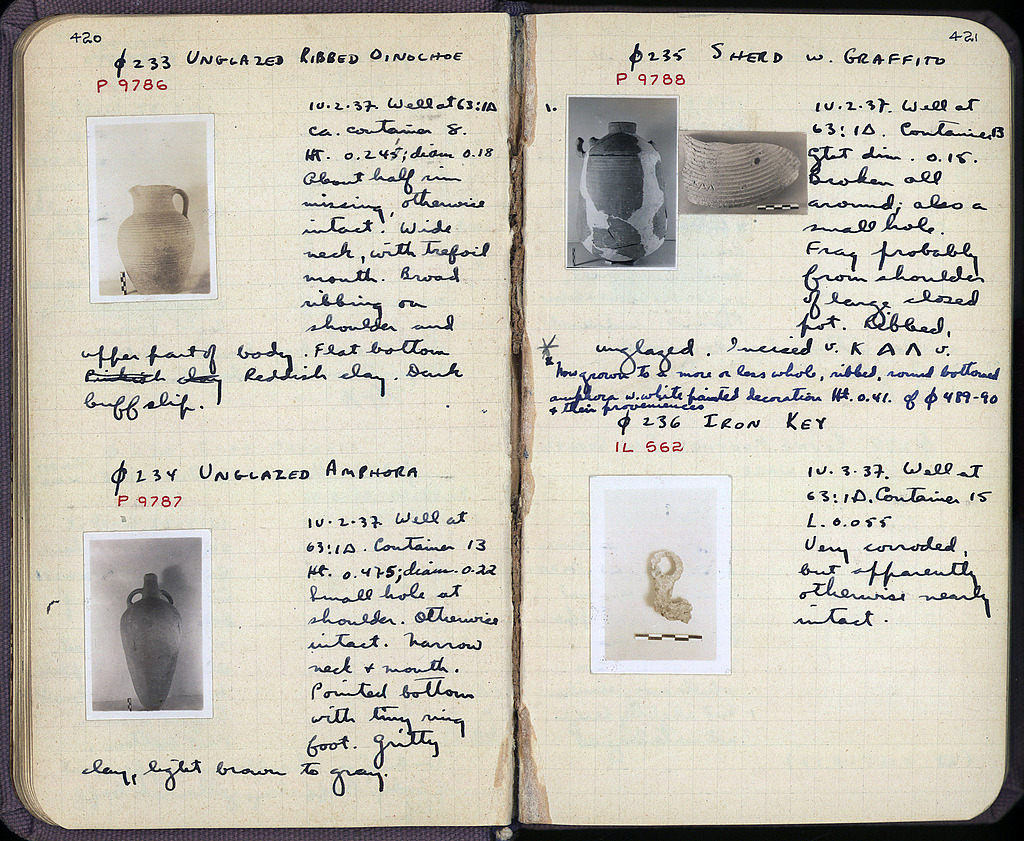 420
φ233 UNGLAZED RIBBED OINOCHOE
P 9786
IV.2.37. Well at 63:1Δ
ca. container 8.
Ht. 0.245; diam 0.18
About half rim
missing, otherwise
intact. Wide
neck, with trefoil
mouth. Broad
ribbing on
shoulder and
upper part of body. Flat bottom
Pinkish clay Reddish clay. Dark
buff slip.
φ234 UNGLAZED AMPHORA
P 9787
IV.2.37. Well at
63:1Δ. Container 13
Ht. 0.475; diam. 0.22
Small hole at
shoulder. Otherwise
intact. Narrow
neck & mouth.
Pointed bottom
with tiny ring
foot. Gritty
clay, light brown to gray.
421
φ235 SHERD W. GRAFFITO
P 9788
1.
IV.2.37. Well at
63:1Δ. Container 13
Gtst dim. 0.15.
Broken all
around; also a
small hole.
Frag probably
from shoulder
of large closed
pot. Ribbed,
unglazed. Incised v. K Λ Λ v.
* Now grown to a more or less whole, ribbed, round bottomed
amphora w. white painted decoration Ht. 0.41. cf φ489-90
& their proveniences
φ236 IRON KEY
IL 562
IV.3.37. Well at
63:1Δ. Container 15
L. 0.055
Very corroded,
but apparently
otherwise nearly
intact.